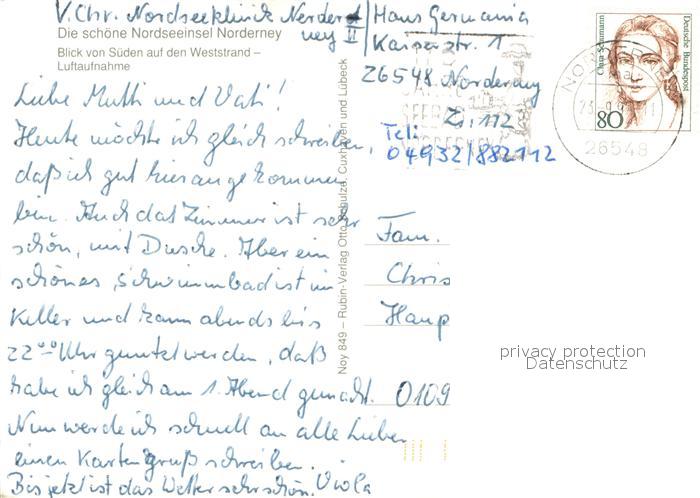 V. Chr. Nordseeklinik Norder-
ney II
Die schöne Nordseeinsel Norderney
Blick von Süden auf den Weststrand –
Luftaufnahme
Liebe Mutti und Vati!
Heute möchte ich gleich schreiben,
daß ich gut hier angekommen
bin. Auch das Zimmer ist sehr
schön, mit Dusche. Aber ein
schönes Schwimmbad ist im
Keller und kann abends bis
22°° Uhr genutzt werden, daß
habe ich gleich am 1. Abend gemacht.
Nun werde ich schnell an alle Lieben
einen Kartengruß schreiben.
Bis jetzt ist das Wetter sehr schön. Viola
Noy 849 – Rubin-Verlag Otto Schulze, Cuxhaven und Lübeck
Haus Germania
Kaiserstr. 1
26548 Norderney
Zi. 112
Tel:
04932/882112
Clara Schumann
Deutsche Bundespost
80
26548
Fam.
Chris
Haup
0109
privacy protection
Datenschutz